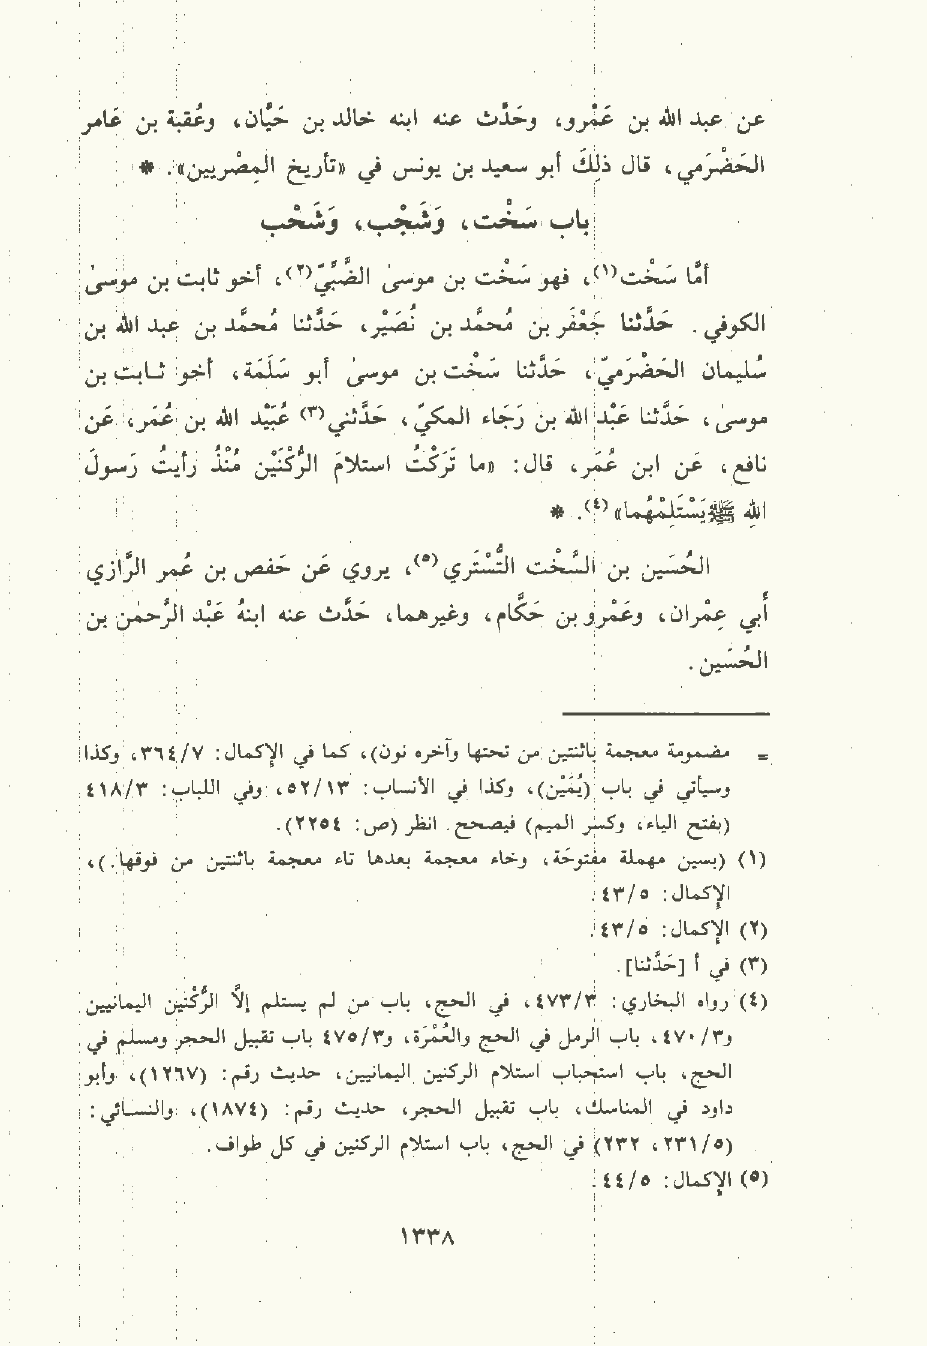 عن عبد الله بن عَمْرو، وحَدَّث عنه ابنه خالد بن حَيَّان، وعُقبة بن عَامر
الحَضْرَمي، قال ذلِكَ أبو سعيد بن يونس في «تأريخ المِصْريين». *
باب سَخْت، وَشَجْب، وَشَحْب
أمَّا سَخْت(١)، فهو سَخْت بن موسىٰ الضَّبِّيّ(٢)، أخو ثابت بن موسىٰ
الكوفي. حَدَّثنا جَعْفَر بن مُحمَّد بن نُصَيْر، حَدَّثنا مُحمَّد بن عبد الله بن
سُليمان الحَضْرَميّ، حَدَّثنا سَخْت بن موسىٰ أبو سَلَمَة، أخو ثابت بن
موسىٰ، حَدَّثنا عَبْد الله بن رَجَاء المكيّ، حَدَّثني(٣) عُبَيْد الله بن عُمَر، عَن
نافع، عَن ابن عُمَر، قال: «ما تَرَكْتُ استلامَ الرُّكْنَيْن مُنْذُ رأيتُ رَسولَ
اللهِ ﷺ يَسْتَلِمْهُما»(٤). *
الحُسَين بن السَّخْت التُّسْتَري(٥)، يروي عَن حَفص بن عُمر الرَّازي
أبي عِمْران، وعَمْرو بن حَكَّام، وغيرهما، حَدَّث عنه ابنهُ عَبْد الرَّحمٰن بن
الحُسَين.
= مضمومة معجمة باثنتين من تحتها وآخره نون)، كما في الإكمال: ٣٦٤/٧، وكذا
وسيأتي في باب (يُمَيْن)، وكذا في الأنساب: ٥٢/١٣، وفي اللباب: ٤١٨/٣
(بفتح الياء، وكسر الميم) فيصحح. انظر (ص: ٢٢٥٤).
(١) (بسين مهملة مفتوحَة، وخاء معجمة بعدها تاء معجمة باثنتين من فوقها.)،
الإكمال: ٤٣/٥.
(٢) الإكمال: ٤٣/٥.
(٣) في أ [حَدَّثنا].
(٤) رواه البخاري: ٤٧٣/٣، في الحج، باب من لم يستلم إلاَّ الرُّكْنَين اليمانيين
و٤٧٠/٣، باب الرمل في الحج والعُمْرَة، و٤٧٥/٣ باب تقبيل الحجر ومسلم في
الحج، باب استحباب استلام الركنين اليمانيين، حديث رقم: (١٢٦٧)، وأبو
داود في المناسك، باب تقبيل الحجر، حديث رقم: (١٨٧٤)، والنسائي:
(٢٣١/٥، ٢٣٢) في الحج، باب استلام الركنين في كل طواف.
(٥) الإكمال: ٤٤/٥.
١٣٣٨